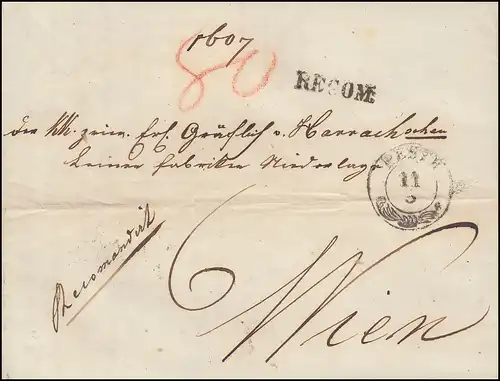 1607
80
RECOM.
Der KK. priv. Erl. Gräflich v. Harrachschen
Leinen Fabriken Niederlage
PESTH
11
3
Recomandirt
6
Wien